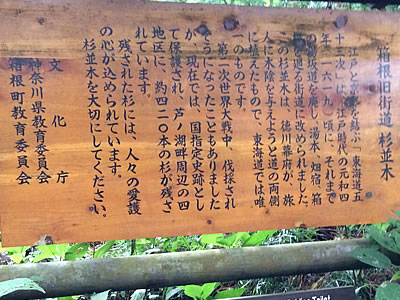 箱根旧街道 杉並木
江戸と京都を結ぶ「東海道五
十三次」は、江戸時代の元和四
年(一六一九)頃に、それまで
の 坂道を廃し、湯本、畑宿、箱
を廻る街道に改められました。
この杉並木は、徳川幕府が、旅
人に木陰を与えようと道の両側
に植えたもので、東海道では唯
一のものです。
第二次世界大戦中、伐採され
そうになったこともありました
が、現在では、国指定史跡とし
て保護され、芦ノ湖畔周辺の四
地区に、約四二〇本の杉が残さ
れています。
残された杉には、人々の愛護
の心が込められています。
杉並木を大切にしてください。
文化庁
神奈川県教育委員会
箱根町教育委員会
Toilet